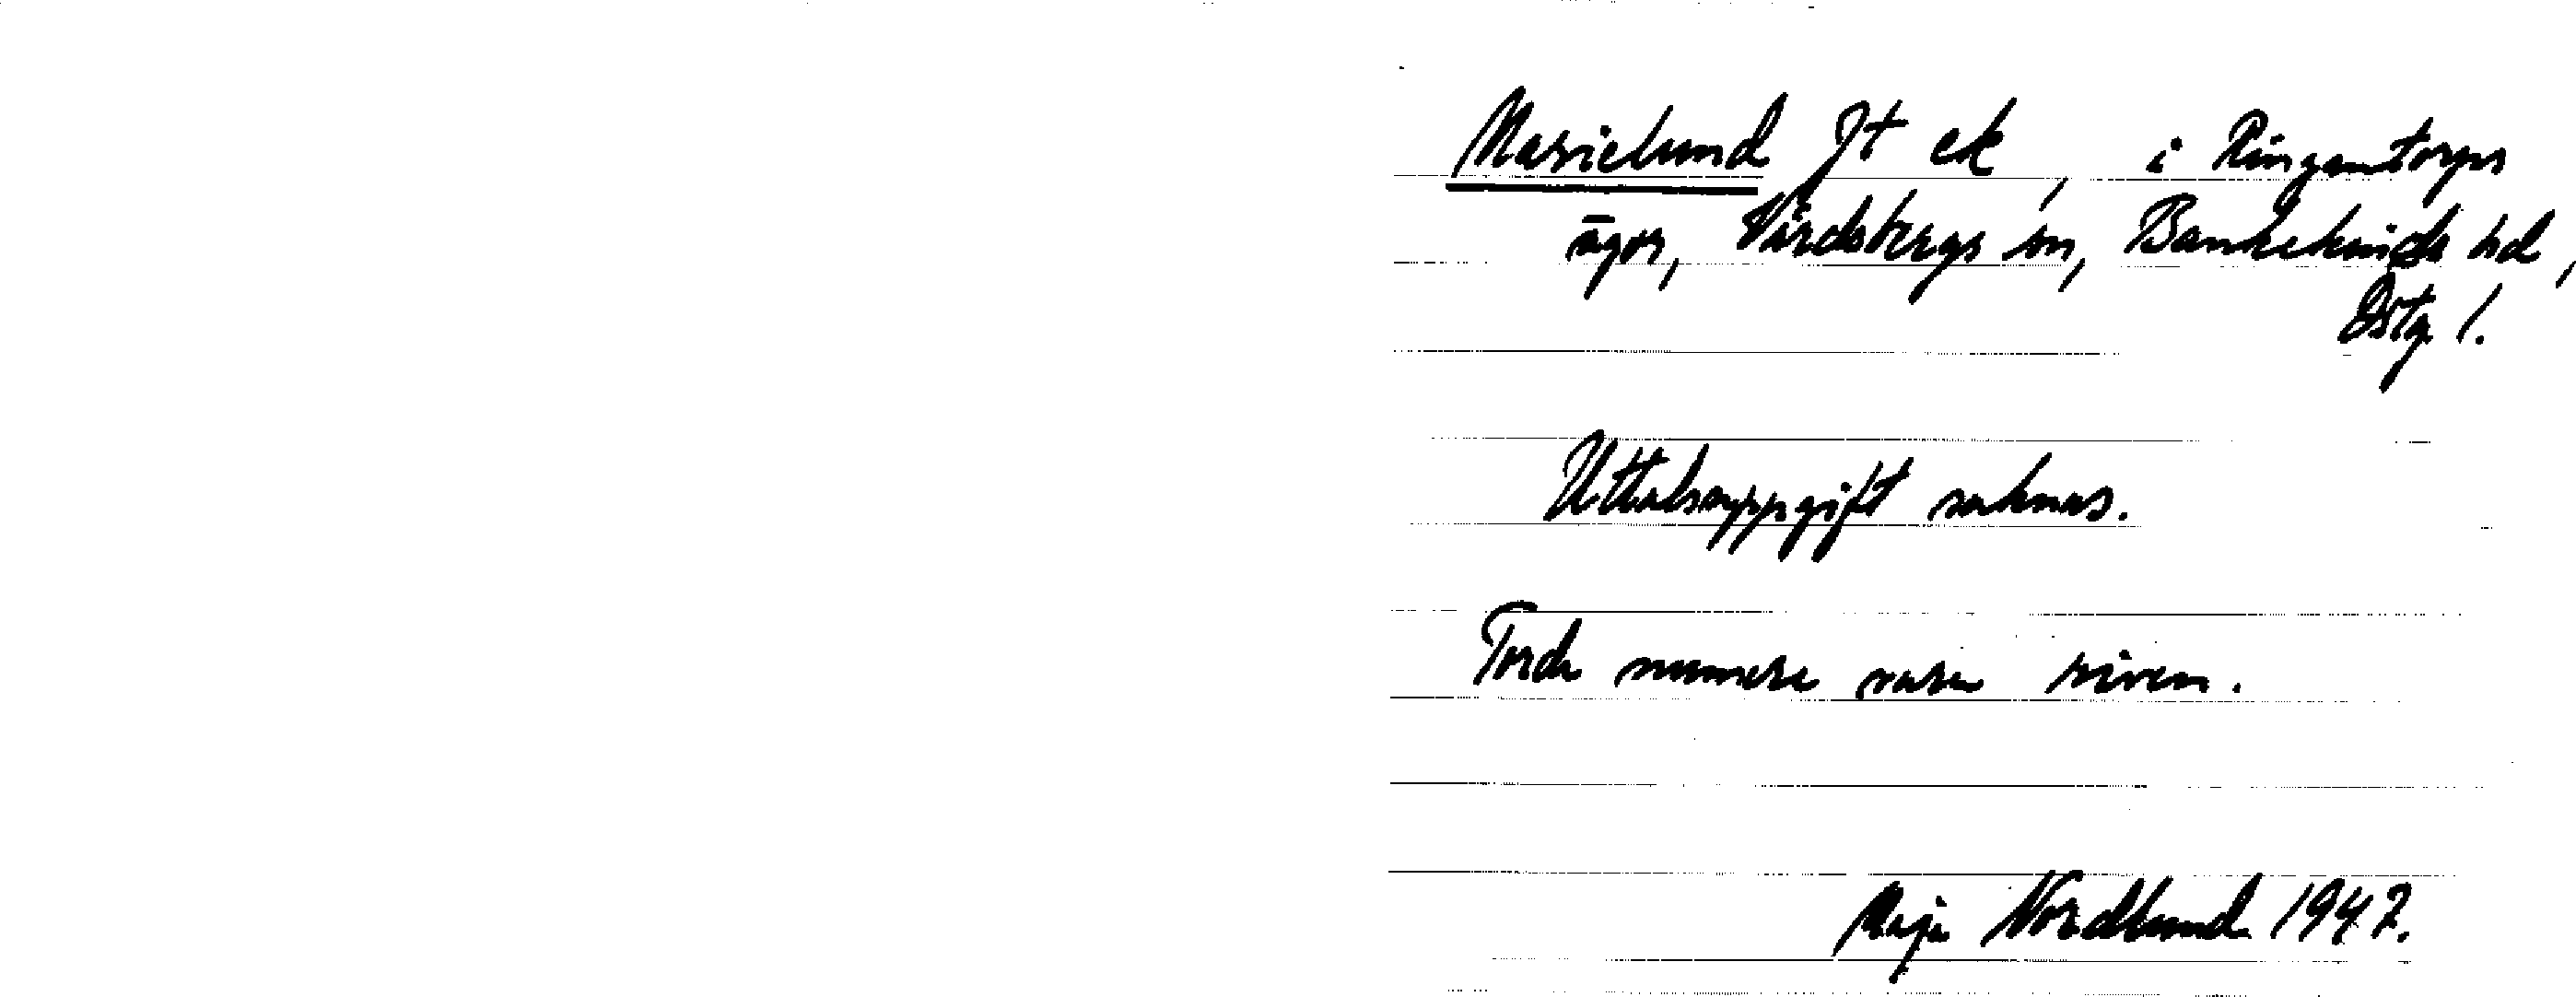 Marielund Jt ek, i Ringentorps
ägor, Vårdsbergs sn, Bankekinds hd,
Östg l.
Uttalsuppgift saknas.
Torde numera vara riven.
Maja Nordlund 1947.